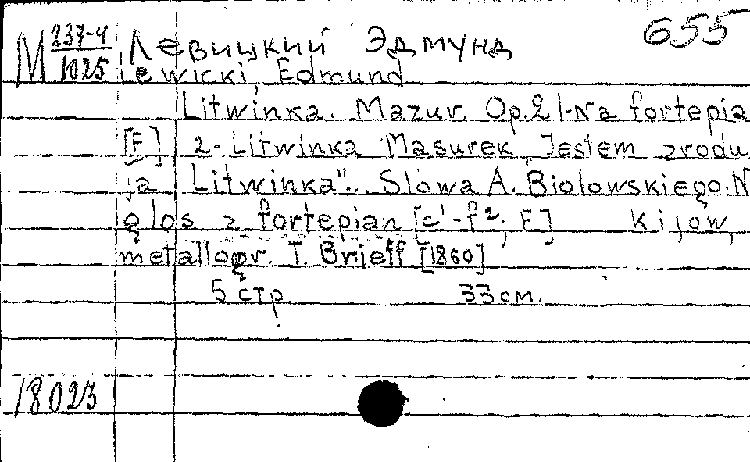 М 237-4/1025 Левицкий Эдмунд 655
Lewicki, Edmund
Litwinka. Mazur. Op.2 1-Na fortepia
[F] 2-Litwinka "Masurek, Jestem zrodu
ja Litwinka". Słowa A. Biolowskiego. N
głos z fortepian [c¹-f²; F] Kijow,
metallogr. T. Brjeff [1860]
5 стр 33 см.
18023